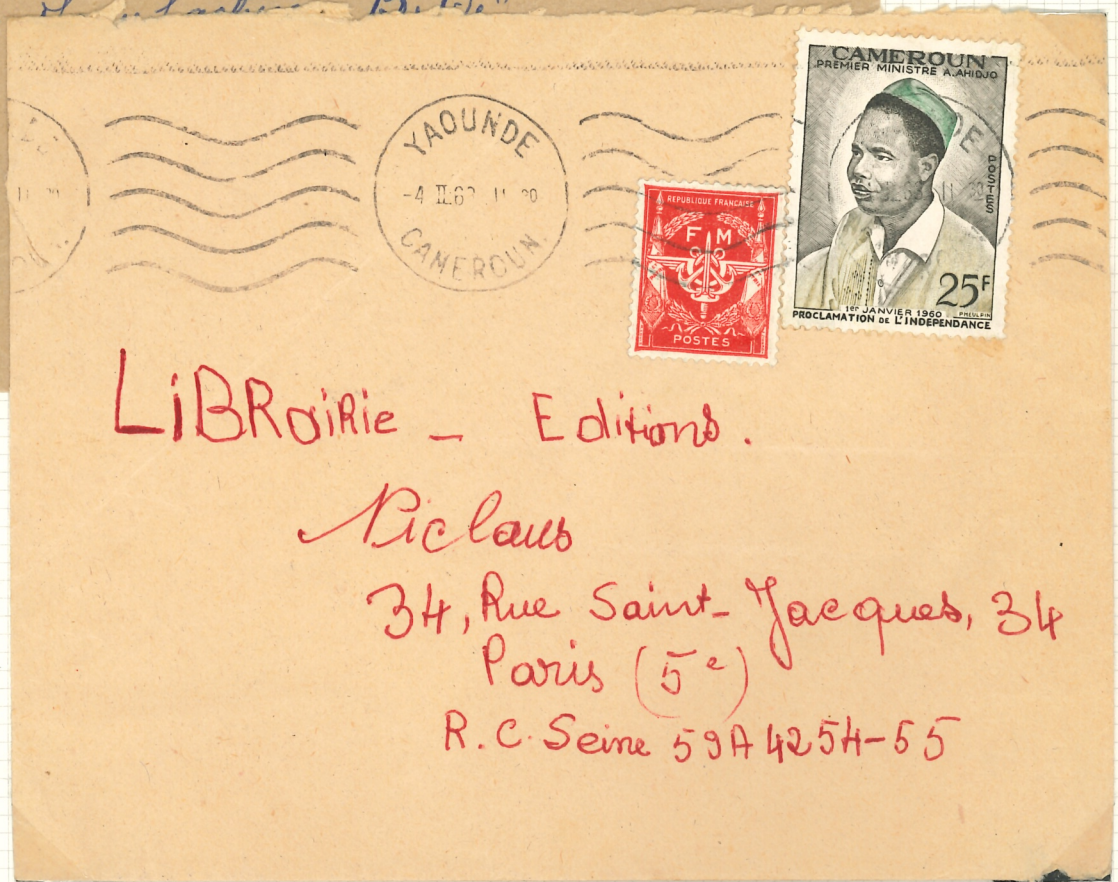 YAOUNDE
CAMEROUN
REPUBLIQUE FRANÇAISE
F M
POSTES
CAMEROUN
PREMIER MINISTRE A. AHIDJO
POSTES
25F
1er JANVIER 1960
PROCLAMATION DE L'INDEPENDANCE
LiBRaiRie _ Editions.
Niclaus
34, Rue Saint-Jacques, 34
Paris (5e)
R.C. Seine 59A4254-55